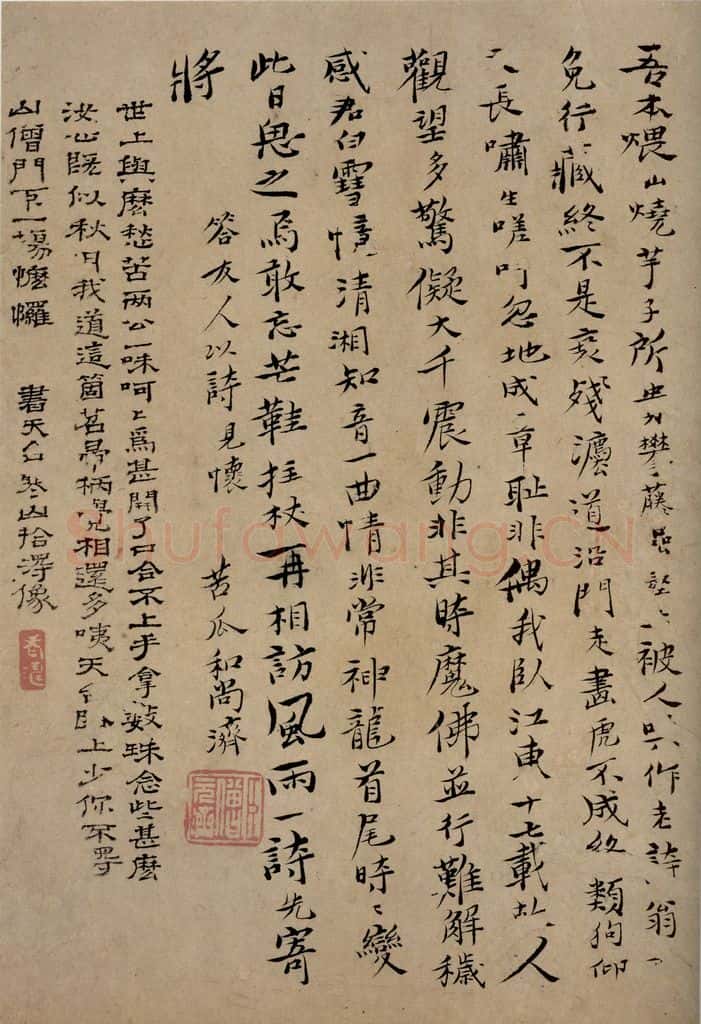 吾本煨山燒芋子所, 攀藤, 被人, 作老詩翁
免行藏終不是衰殘, 道沿門走畫虎不成終類狗仰
天長嘯生嗟吁忽地成章耻非偶我臥江東十七載故人
觀望多驚儗大千震動非其時魔佛並行難解穢
感君白雪憶清湘知音一曲情非常神龍首尾時〻變
此日思之焉敢忘芒鞋拄杖再相訪風雨一詩先寄
將
答友人以詩見懷 苦瓜和尚濟
世上與麽愁苦两公一味呵〻爲甚開了口合不上手拿數珠念些甚麽
汝心既似秋月我道這箇苕帚柄兒相還多咦天台 上少你不得
山僧門下一塲懡㦬 書天台寒山拾得像
Shufawang.CN